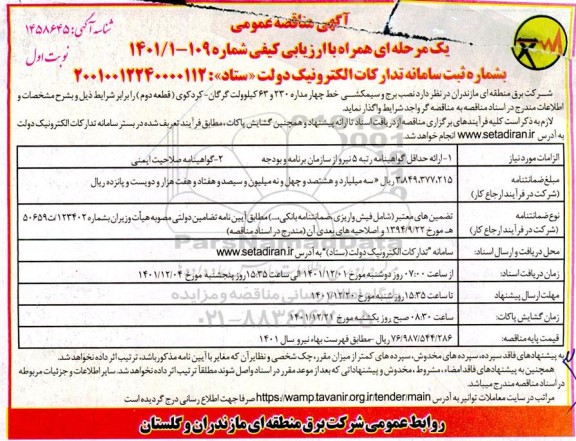 آگهی مناقصه عمومی
شناسه آگهی: ۱۴۵۸۶۴۵
نوبت اول
یک مرحله ای همراه با ارزیابی کیفی شماره ۱۰۹-۱۴۰۱/۱
بشماره ثبت سامانه تدارکات الکترونیک دولت «ستاد»: ۲۰۰۱۰۰۱۲۲۴۰۰۰۰۱۱۲
شرکت برق منطقه ای مازندران در نظر دارد نصب برج و سیمکشی خط چهار مداره ۲۳۰ و ۶۳ کیلوولت گرگان-کردکوی (قطعه دوم) را برابر شرایط ذیل و بشرح مشخصات و
اطلاعات مندرج در اسناد مناقصه به مناقصه گر واجد شرایط واگذار نماید.
لازم به ذکر است کلیه فرآیندهای برگزاری مناقصه از دریافت اسناد تا ارائه پیشنهاد و همچنین گشایش پاکات، مطابق فرآیند تعریف شده در بستر سامانه تدارکات الکترونیک دولت
به آدرس www.setadiran.ir انجام خواهد شد.
الزامات مورد نیاز
۱- ارائه حداقل گواهینامه رتبه ۵ نیرو از سازمان برنامه و بودجه ۲-گواهینامه صلاحیت ایمنی
مبلغ ضمانتنامه (شرکت در فرآیند ارجاع کار)
۳،۸۴۹،۳۷۷،۲۱۵ ریال «سه میلیارد و هشتصد و چهل و نه میلیون و سیصد و هفتاد و هفت هزار و دویست و پانزده ریال
نوع ضمانتنامه (شرکت در فرآیند ارجاع کار)
تضمین های معتبر (شامل فیش واریزی، ضمانتنامه بانکی،...) مطابق آیین نامه تضامین دولتی مصوبه هیأت وزیران بشماره ۱۲۳۴۰۲/ت۵۰۶۵۹
هـ مورخ ۱۳۹۴/۹/۲۲ و اصلاحیه های بعدی آن (مندرج در اسناد مناقصه)
محل دریافت و ارسال اسناد:
سامانه "تدارکات الکترونیک دولت (ستاد)" به آدرس www.setadiran.ir
زمان دریافت اسناد:
از ساعت ۰۷:۰۰ روز دوشنبه مورخ ۱۴۰۱/۱۲/۰۱ الی ساعت ۱۵:۳۵ روز پنجشنبه مورخ ۱۴۰۱/۱۲/۰۴
مهلت ارسال پیشنهاد
تا ساعت ۱۵:۳۵ روز شنبه مورخ ۱۴۰۱/۱۲/۲۰
زمان گشایش پاکات:
ساعت ۰۸:۳۰ صبح روز یکشنبه مورخ ۱۴۰۱/۱۲/۲۱
قیمت پایه مناقصه:
۷۶/۹۸۷/۵۴۴/۲۸۶ ریال -مطابق فهرست بهاء نیرو سال ۱۴۰۱
به پیشنهادهای فاقد سپرده، سپرده های مخدوش، سپرده های کمتر از میزان مقرر، چک شخصی و نظایر آن که مغایر با آیین نامه مذکور باشد، ترتیب اثر داده نخواهد شد.
همچنین به پیشنهادهای فاقد امضاء، مشروط، مخدوش و پیشنهاداتی که بعد از موعد مقرر در اسناد واصل شوند مطلقاً ترتیب اثر داده نخواهد شد. سایر اطلاعات و جزئیات مربوطه
در اسناد مناقصه مندرج میباشد.
مراتب در سایت معاملات توانیر به آدرس https://wamp.tavanir.org.ir/tender/main صرفا جهت اطلاع رسانی درج گردیده است
روابط عمومی شرکت برق منطقه ای مازندران و گلستان